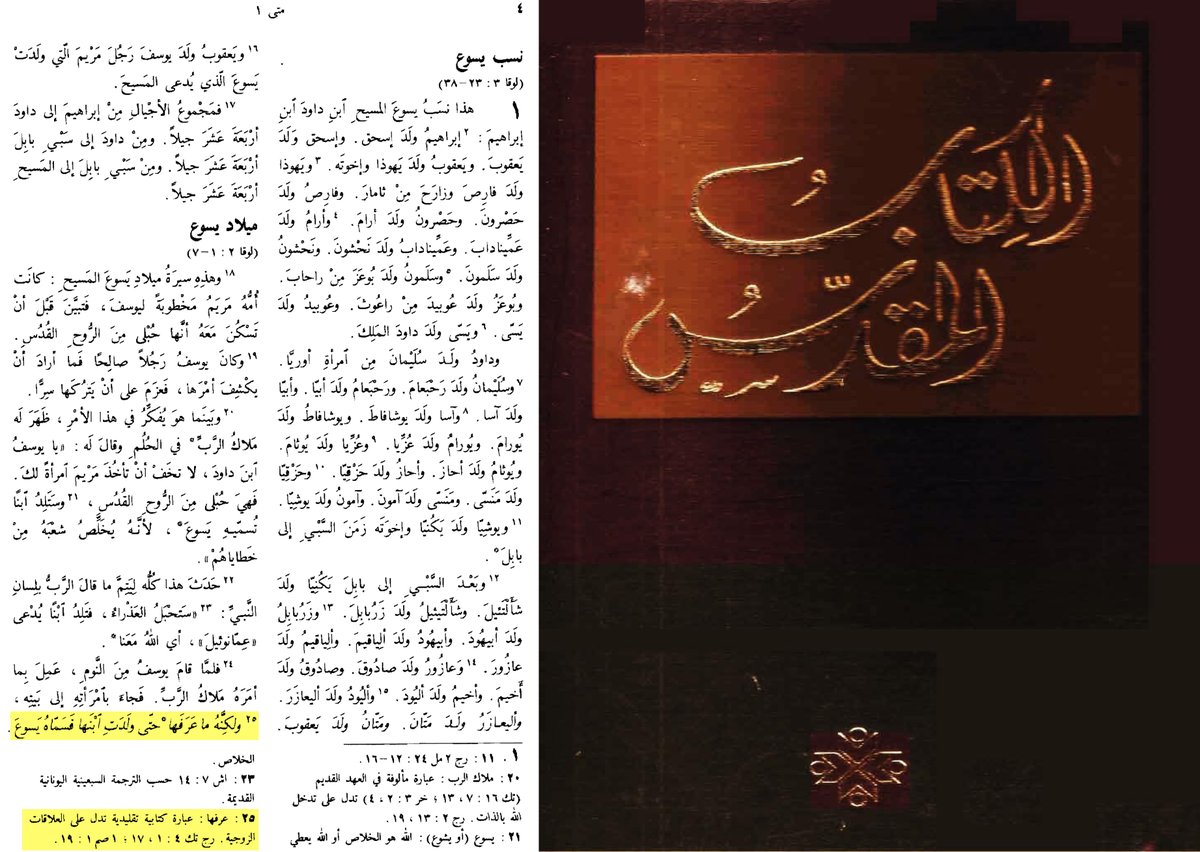 ٤
متى ١
نسب يسوع
(لوقا ٣ : ٢٣-٣٨)
١ هذا نسَبُ يسوعَ المسيحِ ٱبنِ داودَ ٱبنِ
إبراهيمَ : ٢إبراهيمُ ولَدَ إسحق. وإسحق وَلَدَ
يَعقوبَ. ويَعقوبُ ولَدَ يَهوذا وإخوتَه. ٣ويَهوذا
ولَدَ فارِصَ وزارَحَ مِنْ ثامارَ. وفارِصُ ولَدَ
حَصْرونَ. وحَصْرونُ ولَدَ أرامَ. ٤وأرامُ ولَدَ
عَمِّينادابَ. وعَمِّينادابُ ولَدَ نَحْشونَ. ونَحْشونُ
ولَدَ سَلَمونَ. ٥وسَلَمونُ ولَدَ بُوعَزَ مِنْ راحابَ.
وبُوعَزُ ولَدَ عُوبيدَ مِنْ راعُوثَ. وعُوبيدُ ولَدَ
يَسَّى. ٦ويَسَّى ولَدَ داودَ المَلِكَ.
وداودُ ولَدَ سُلَيْمانَ مِن ٱمرأةِ أوريَّا.
٧وسُلَيْمانُ ولَدَ رَحَبْعامَ. ورَحَبْعامُ ولَدَ أبيَّا. وأبيَّا
ولَدَ آسا. ٨وآسا ولَدَ يوشافاطَ. ويوشافاطُ ولَدَ
يُورامَ. ويُورامُ ولَدَ عُزِّيا. ٩وعُزِّيا ولَدَ يُوثامَ.
ويُوثامُ ولَدَ أحازَ. وأحازُ ولَدَ حَزْقِيَّا. ١٠وحَزْقِيَّا
ولَدَ مَنَسَّى. ومَنَسَّى ولَدَ آمونَ. وآمونُ ولَدَ يوشِيَّا.
١١ويوشِيَّا ولَدَ يَكُنْيَّا وإخوَتَه زَمَنَ السَّبْيِ إلى
بابِلَ*.
١٢وبَعْدَ السَّبْيِ إلى بابِلَ يَكُنِيَّا ولَدَ
شألْتَئيلَ. وشألْتَئيلُ ولَدَ زَرُبابِلَ. ١٣وزَرُبابِلُ
ولَدَ أبيهُودَ. وأبيهُودُ ولَدَ ألِياقيمَ. وألِياقيمُ ولَدَ
عازُورَ. ١٤وَعازُورُ ولَدَ صادُوقَ. وصادُوقُ ولَدَ
أخيمَ. وأخيمُ ولَدَ أليُودَ. ١٥وأليُودُ ولَدَ أليعازَرَ.
وأليعازَرُ ولَدَ مَتّانَ. ومَتّانُ ولَدَ يَعقوبَ.
١٦ويَعقوبُ ولَدَ يوسفَ رَجُلَ مَرْيمَ الَّتي ولَدَتْ
يَسوعَ الَّذي يُدعى المَسيحَ.
١٧فمَجْموعُ الأجْيالِ مِنْ إبراهيمَ إلى داودَ
أربَعَةَ عَشَرَ جيلاً. ومِنْ داودَ إلى سَبْيِ بابِلَ
أربَعَةَ عَشَرَ جيلاً. ومِنْ سَبْيِ بابِلَ إلى المَسيحِ
أربَعَةَ عَشَرَ جيلاً.
ميلاد يسوع
(لوقا ٢ : ١-٧)
١٨وهذِهِ سيرَةُ ميلادِ يَسوعَ المَسيحِ : كانَت
أُمُّهُ مَريَمُ مَخْطوبَةً ليوسفَ، فَتبيَّنَ قَبْلَ أنْ
تَسْكُنَ مَعَهُ أنَّها حُبْلى مِنَ الرُّوحِ القُدُسِ.
١٩وكانَ يوسفُ رَجُلاً صالِحًا فَما أرادَ أنْ
يكْشِفَ أمْرَها، فعَزمَ على أنْ يَترُكَها سِرًّا.
٢٠وبَينَما هوَ يُفكِّرُ في هذا الأمْرِ، ظَهَرَ لَه
مَلاكُ الرَّبِّ* في الحُلُمِ وقالَ لَه : «يا يوسفُ
ٱبنَ داودَ، لا تخَفْ أنْ تأخُذَ مَرْيمَ ٱمرأةً لكَ.
فَهِيَ حُبْلى مِنَ الرُّوحِ القُدُسِ، ٢١وسَتَلِدُ ٱبنًا
تُسمِّيهِ يَسوعَ*، لأنَّهُ يُخَلِّصُ شعْبَهُ مِنْ
خَطاياهُمْ».
٢٢حَدَثَ هذا كُلُّه لِيَتِمَّ ما قالَ الرَّبُّ بلِسانِ
النَّبيِّ : ٢٣«سَتحْبَلُ العَذْراءُ، فتَلِدُ ٱبْنًا يُدْعى
«عِمّانوئيلَ»، أي اللهُ مَعَنا*.
٢٤فلمَّا قامَ يوسفُ مِنَ النَّومِ، عَمِلَ بِما
أمَرَهُ مَلاكُ الرَّبِّ. فَجاءَ بٱمْرَأتِهِ إلى بَيتِه،
٢٥ولكِنَّهُ ما عَرَفَها* حتّى ولَدَتِ ٱبْنَها فَسَمّاهُ يَسوعَ.
١. ١١ : رج ٢مل ٢٤ : ١٢-١٦.
٢٠ : ملاك الرب : عبارة مألوفة في العهد القديم
(تك ١٦ : ٧، ١٣؛ خر ٣ : ٢، ٤) تدل على تدخل
الله بالذات. رج ٢ : ١٣، ١٩.
٢١ : يسوع (أو يشوع) : الله هو الخلاص أو الله يعطي
الخلاص.
٢٣ : اش ٧ : ١٤ حسب الترجمة السبعينية اليونانية
القديمة.
٢٥ : عرفها : عبارة كتابية تقليدية تدل على العلاقات
الزوجية. رج تك ٤ : ١، ١٧؛ ١صم ١ : ١٩.
الكِتَابُ
المقدّس